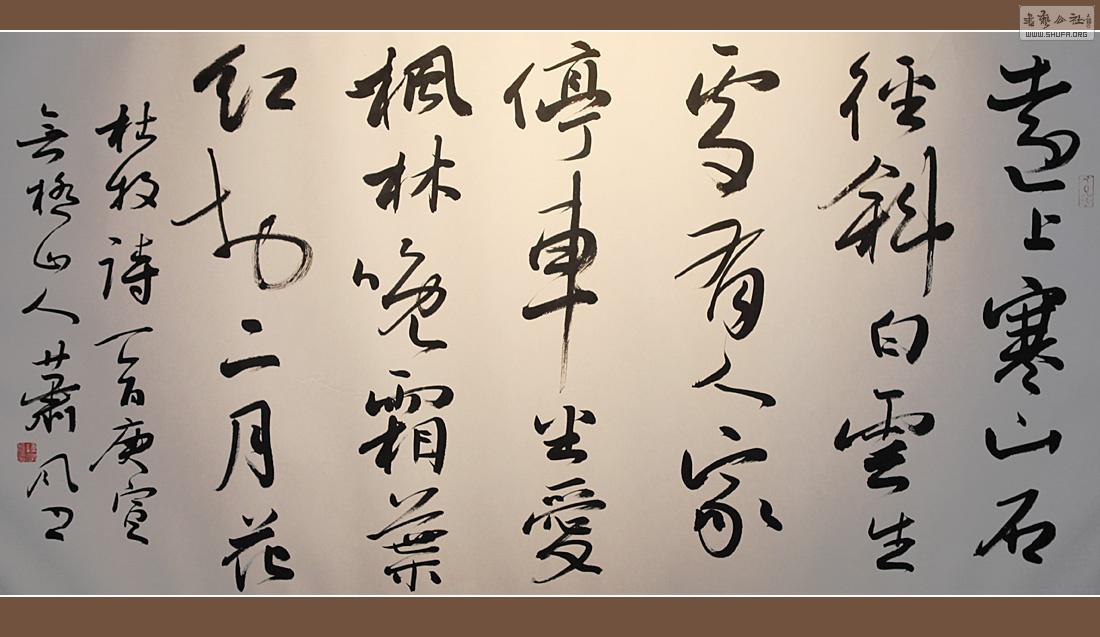 遠上寒山石
徑斜白雲生
處有人家
停車坐愛
楓林晚霜葉
紅於二月花
杜牧詩
山人蕭風
書藝公社
WWW.SHUFA.ORG